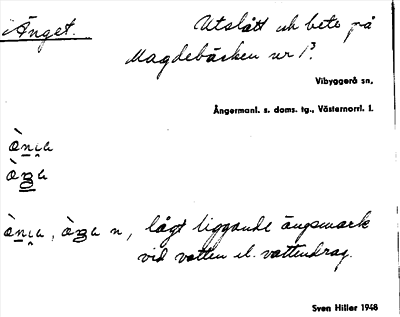 Änget.
Utslått och bete på
Magdebäcken nr 1³.
Vibyggerå sn,
Ångermanl. s. doms. tg., Västernorrl. l.
lågt liggande ängsmark
vid vatten el. vattendrag.
Sven Hiller 1948